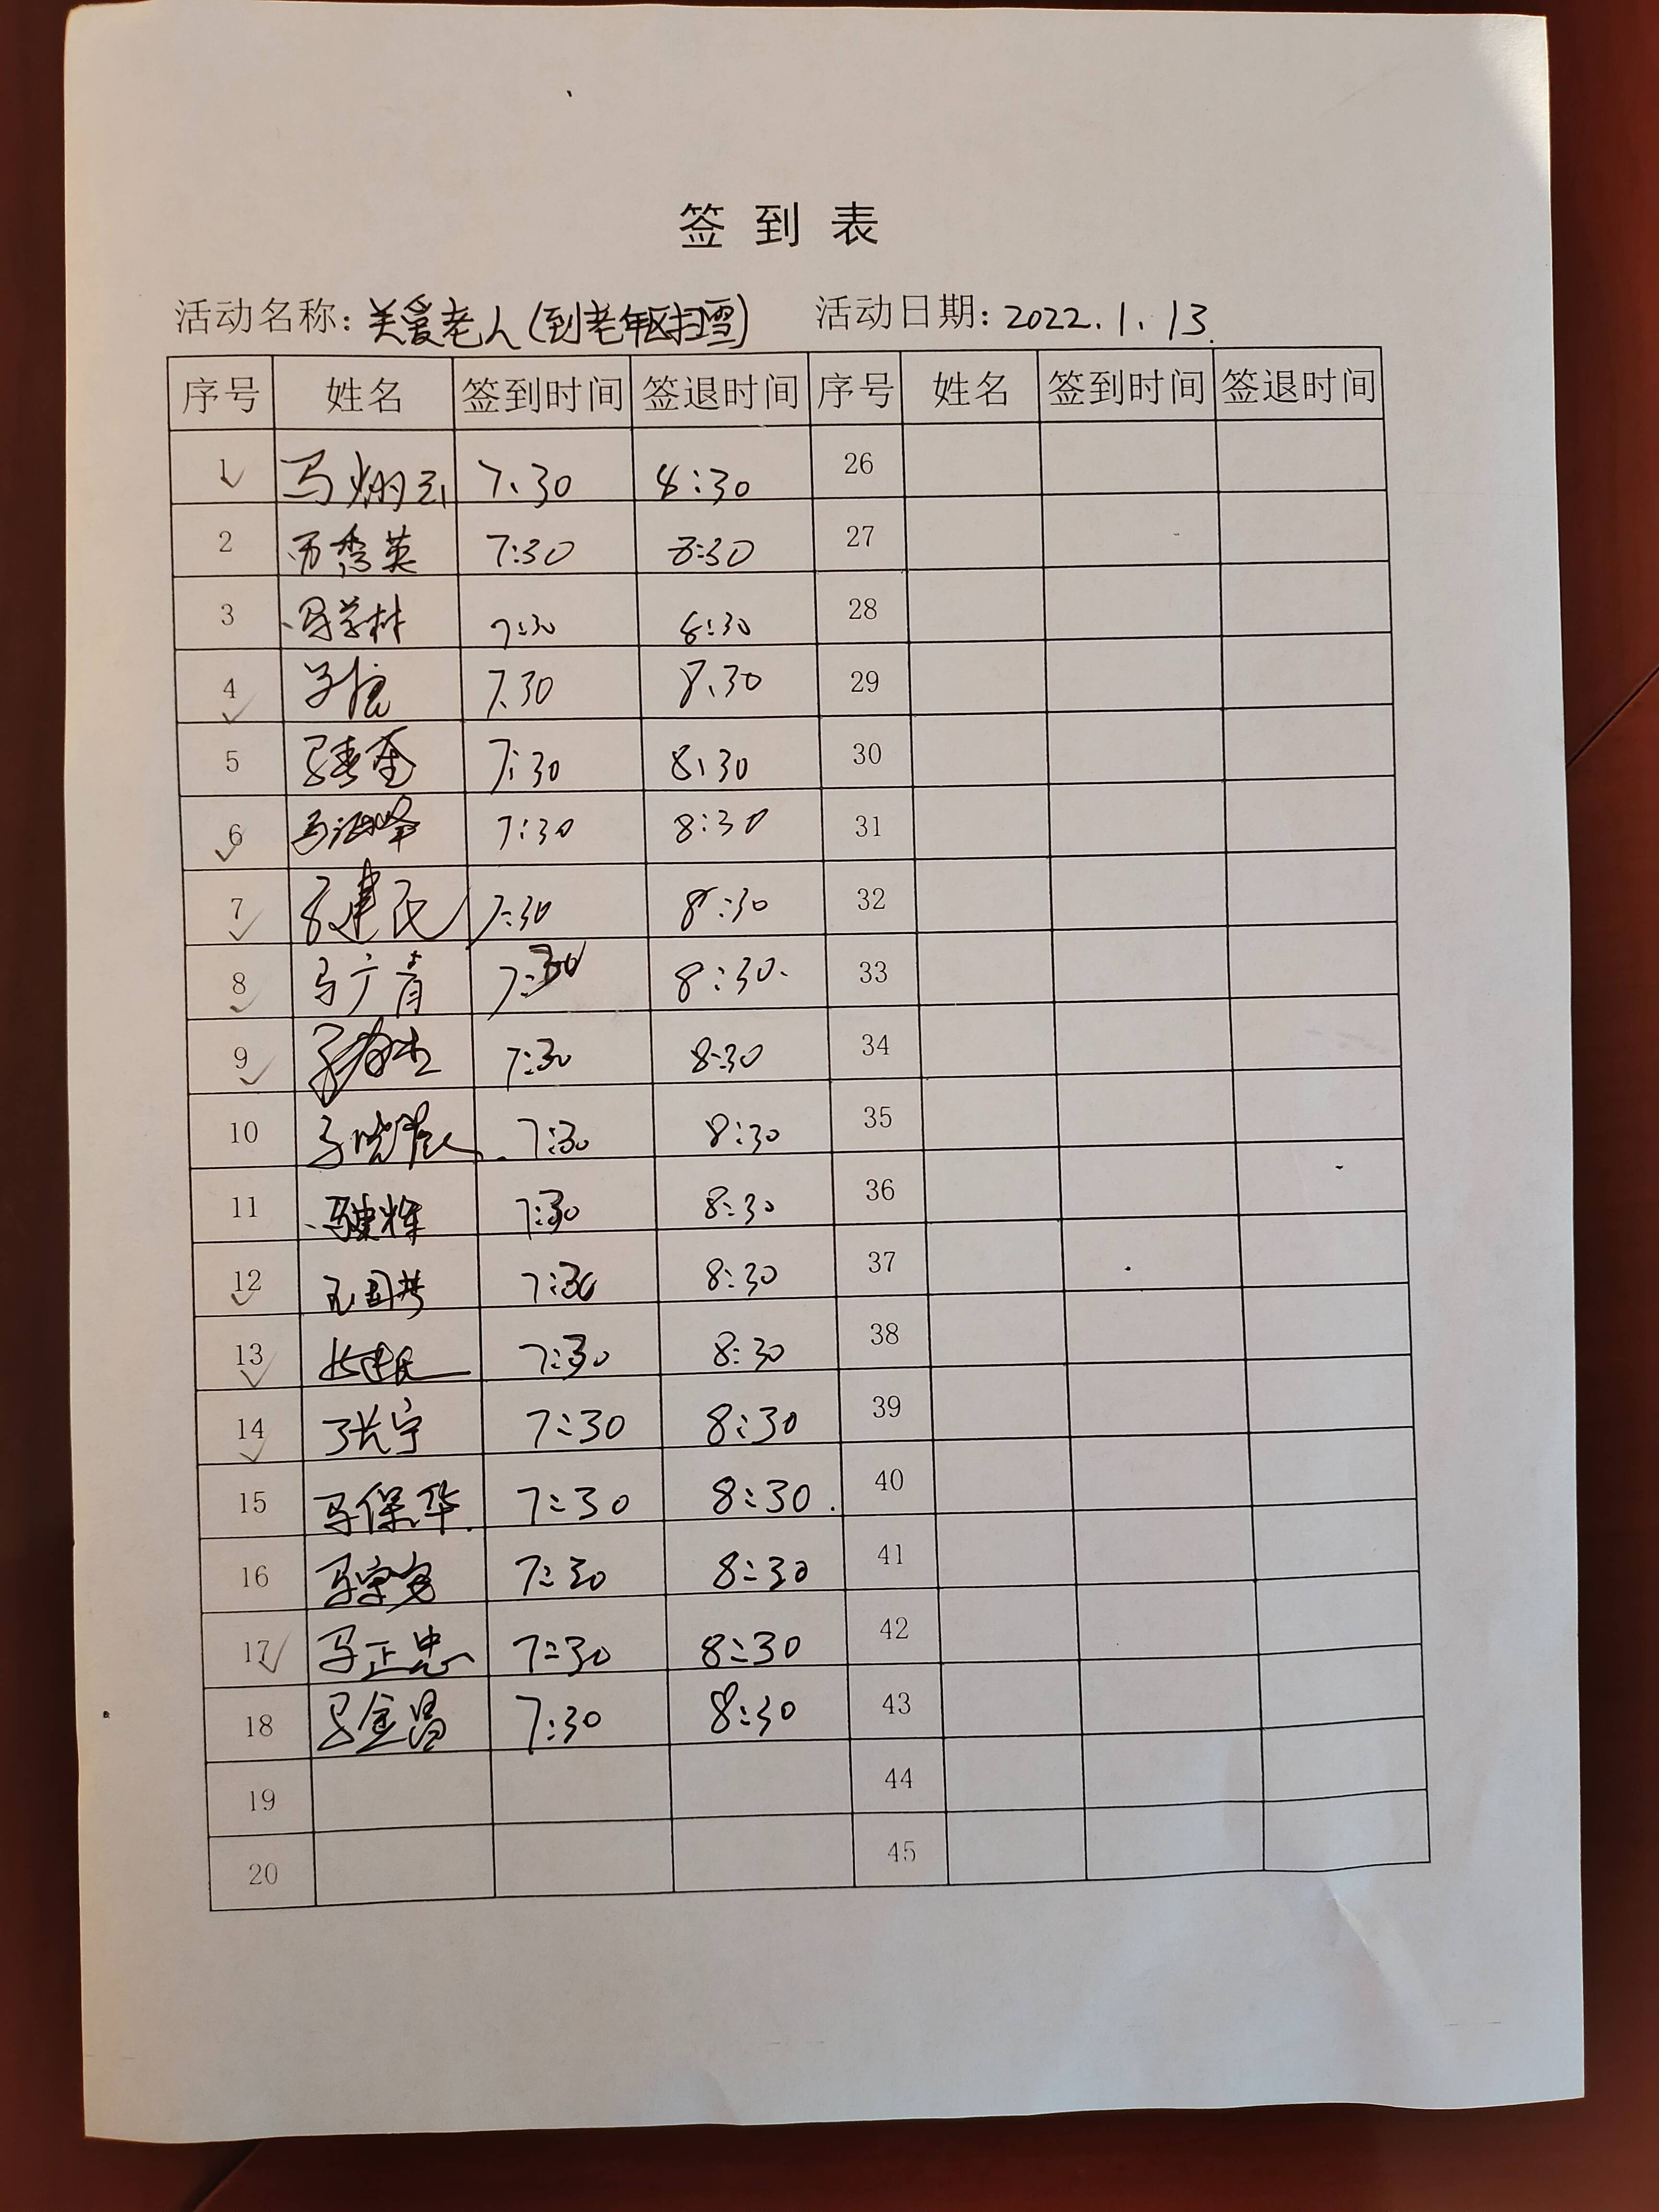 签到表
活动名称：关爱老人（到老年区扫雪） 活动日期：2022.1.13.
序号 姓名 签到时间 签退时间 序号 姓名 签到时间 签退时间
1 马炳云 7.30 8:30 26
2 马秀英 7:30 8:30 27
3 马学林 7:30 8:30 28
4 7.30 8.30 29
5 7:30 8:30 30
6 马海峰 7:30 8:30 31
7 马建民 7:30 8:30 32
8 马广青 7:30 8:30. 33
9 7:30 8:30 34
10 7:30 8:30 35
11 7:30 8:30 36
12 7:30 8:30 37
13 7:30 8:30 38
14 7:30 8:30 39
15 马保华. 7:30 8:30. 40
16 7:30 8:30 41
17 马正忠 7:30 8:30 42
18 马金昌 7:30 8:30 43
19 44
20 45